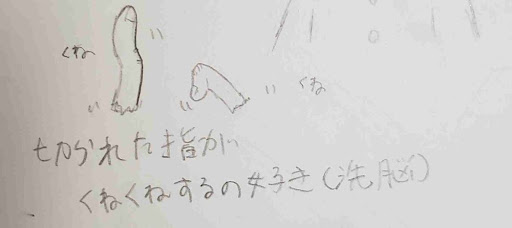 くね
くね
切られた指が
くねくねするの好き(洗脳)